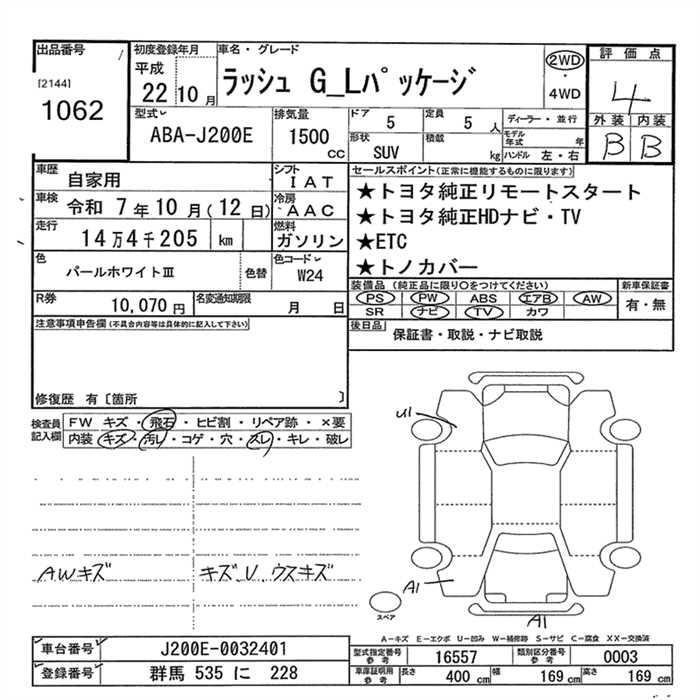 出品番号
[2144]
1062
初度登録年月
平成
22 10 月
車名・グレード
ラッシュ G_Lパッケージ
2WD
・
4WD
評価点
4
外装 内装
B B
型式
ABA-J200E
排気量
1500
CC
ドア
5
定員
5 人
形状
SUV
積載
kg
ディーラー・並行
モデル年式 年
ハンドル 左・右
車歴
自家用
シフト
IAT
車検 令和 7 年 10 月 (12 日)
冷房
AAC
走行
14 万 4 千 205 km
燃料
ガソリン
色
パールホワイトⅢ
色替
色コード
W24
R券
10,070 円
名変通知期限
月 日
セールスポイント(正常に機能するものに限ります)
★トヨタ純正リモートスタート
★トヨタ純正HDナビ・TV
★ETC
★トノカバー
装備品 (純正品に限り○をつけてください)
PS PW ABS エアB AW
SR ナビ TV カワ
新車保証書
有・無
後日品
保証書・取説・ナビ取説
注意事項申告欄(不具合内容等は具体的に記入して下さい)
修復歴 有〔箇所 〕
検査員記入欄
FW キズ・飛石・ヒビ割・リペア跡・×要
内装 キズ・汚レ・コゲ・穴・スレ・キレ・破レ
AWキズ
キズU ウスキズ
U1
A1
スペア
A1
A-キズ E-エクボ U-凹み W-補修跡 S-サビ C-腐食 XX-交換済
車台番号
J200E-0032401
登録番号
群馬 535 に 228
型式指定番号
参考
16557
類別区分番号
参考
0003
車庫証明用
参考
長さ
400 cm
幅
169 cm
高さ
169 cm